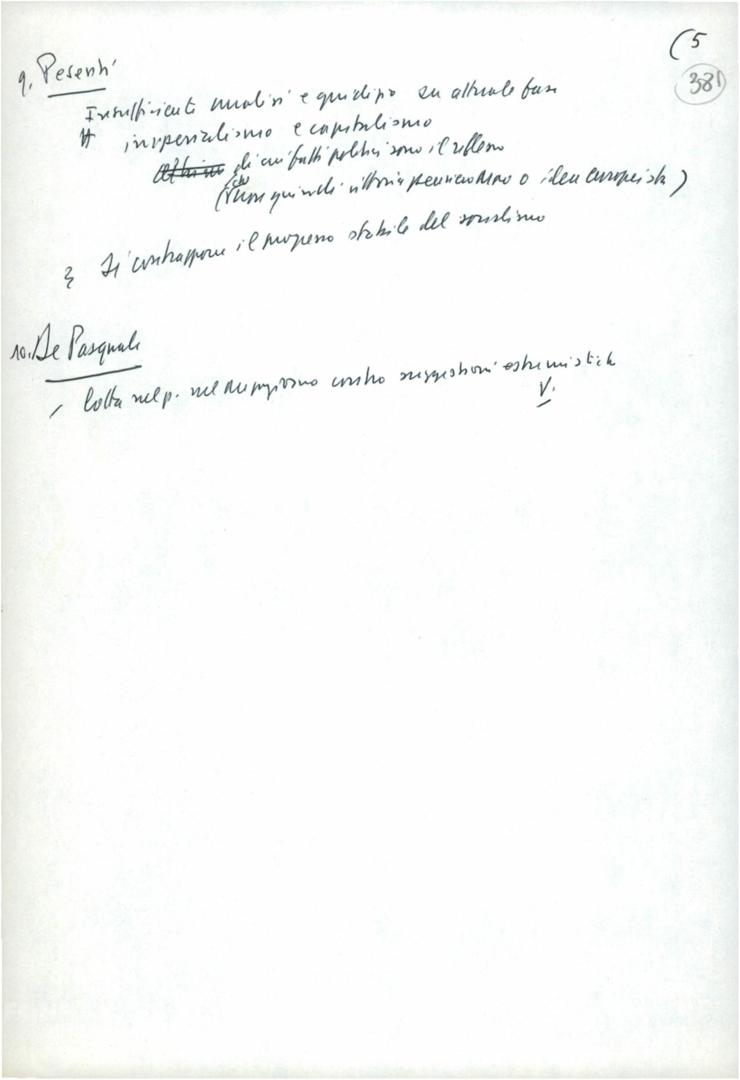 (5
381
9. Pesenti
Insufficiente analisi e giudizio su attuale fase
imperialismo e capitalismo
di cui fatti politici sono il riflesso
(non quindi vittoria o idea europeista)
Si contrappone il progresso stabile del socialismo
10. De Pasquale
lotta nel p. nel contro suggestioni estremistiche
V.